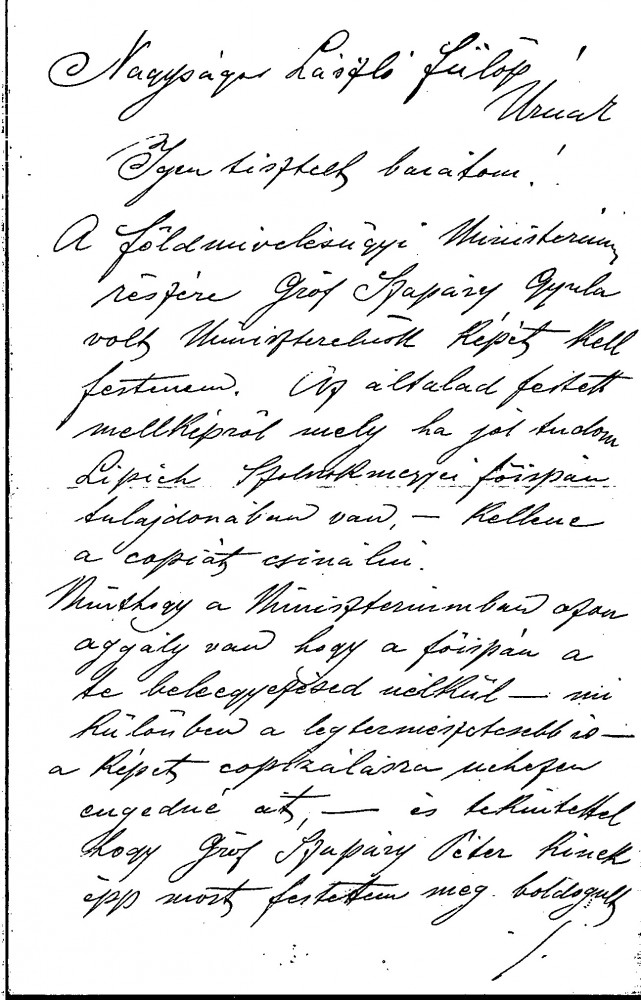 Nagyságos László Fülöp!
Urnak
Igen tisztelt barátom!
A földmivelésügyi Ministerium
részére Gróf Szapáry Gyula
volt Miniszterelnök képét kell
festenem. Az általad festett
mellképről mely ha jól tudom
Lipich Szolnokmegyei főispán
tulajdonában van, — kellene
a copiát csinálni.
Minthogy a Miniszteriumban azon
aggály van hogy a főispán a
te beleegyezésed nélkül — mi
különben a legtermészetesebb is —
a képet copizálásra nehezen
engedné át, — és tekintettel
hogy Gróf Szapáry Péter kinek
épp most festettem meg boldogult
./.